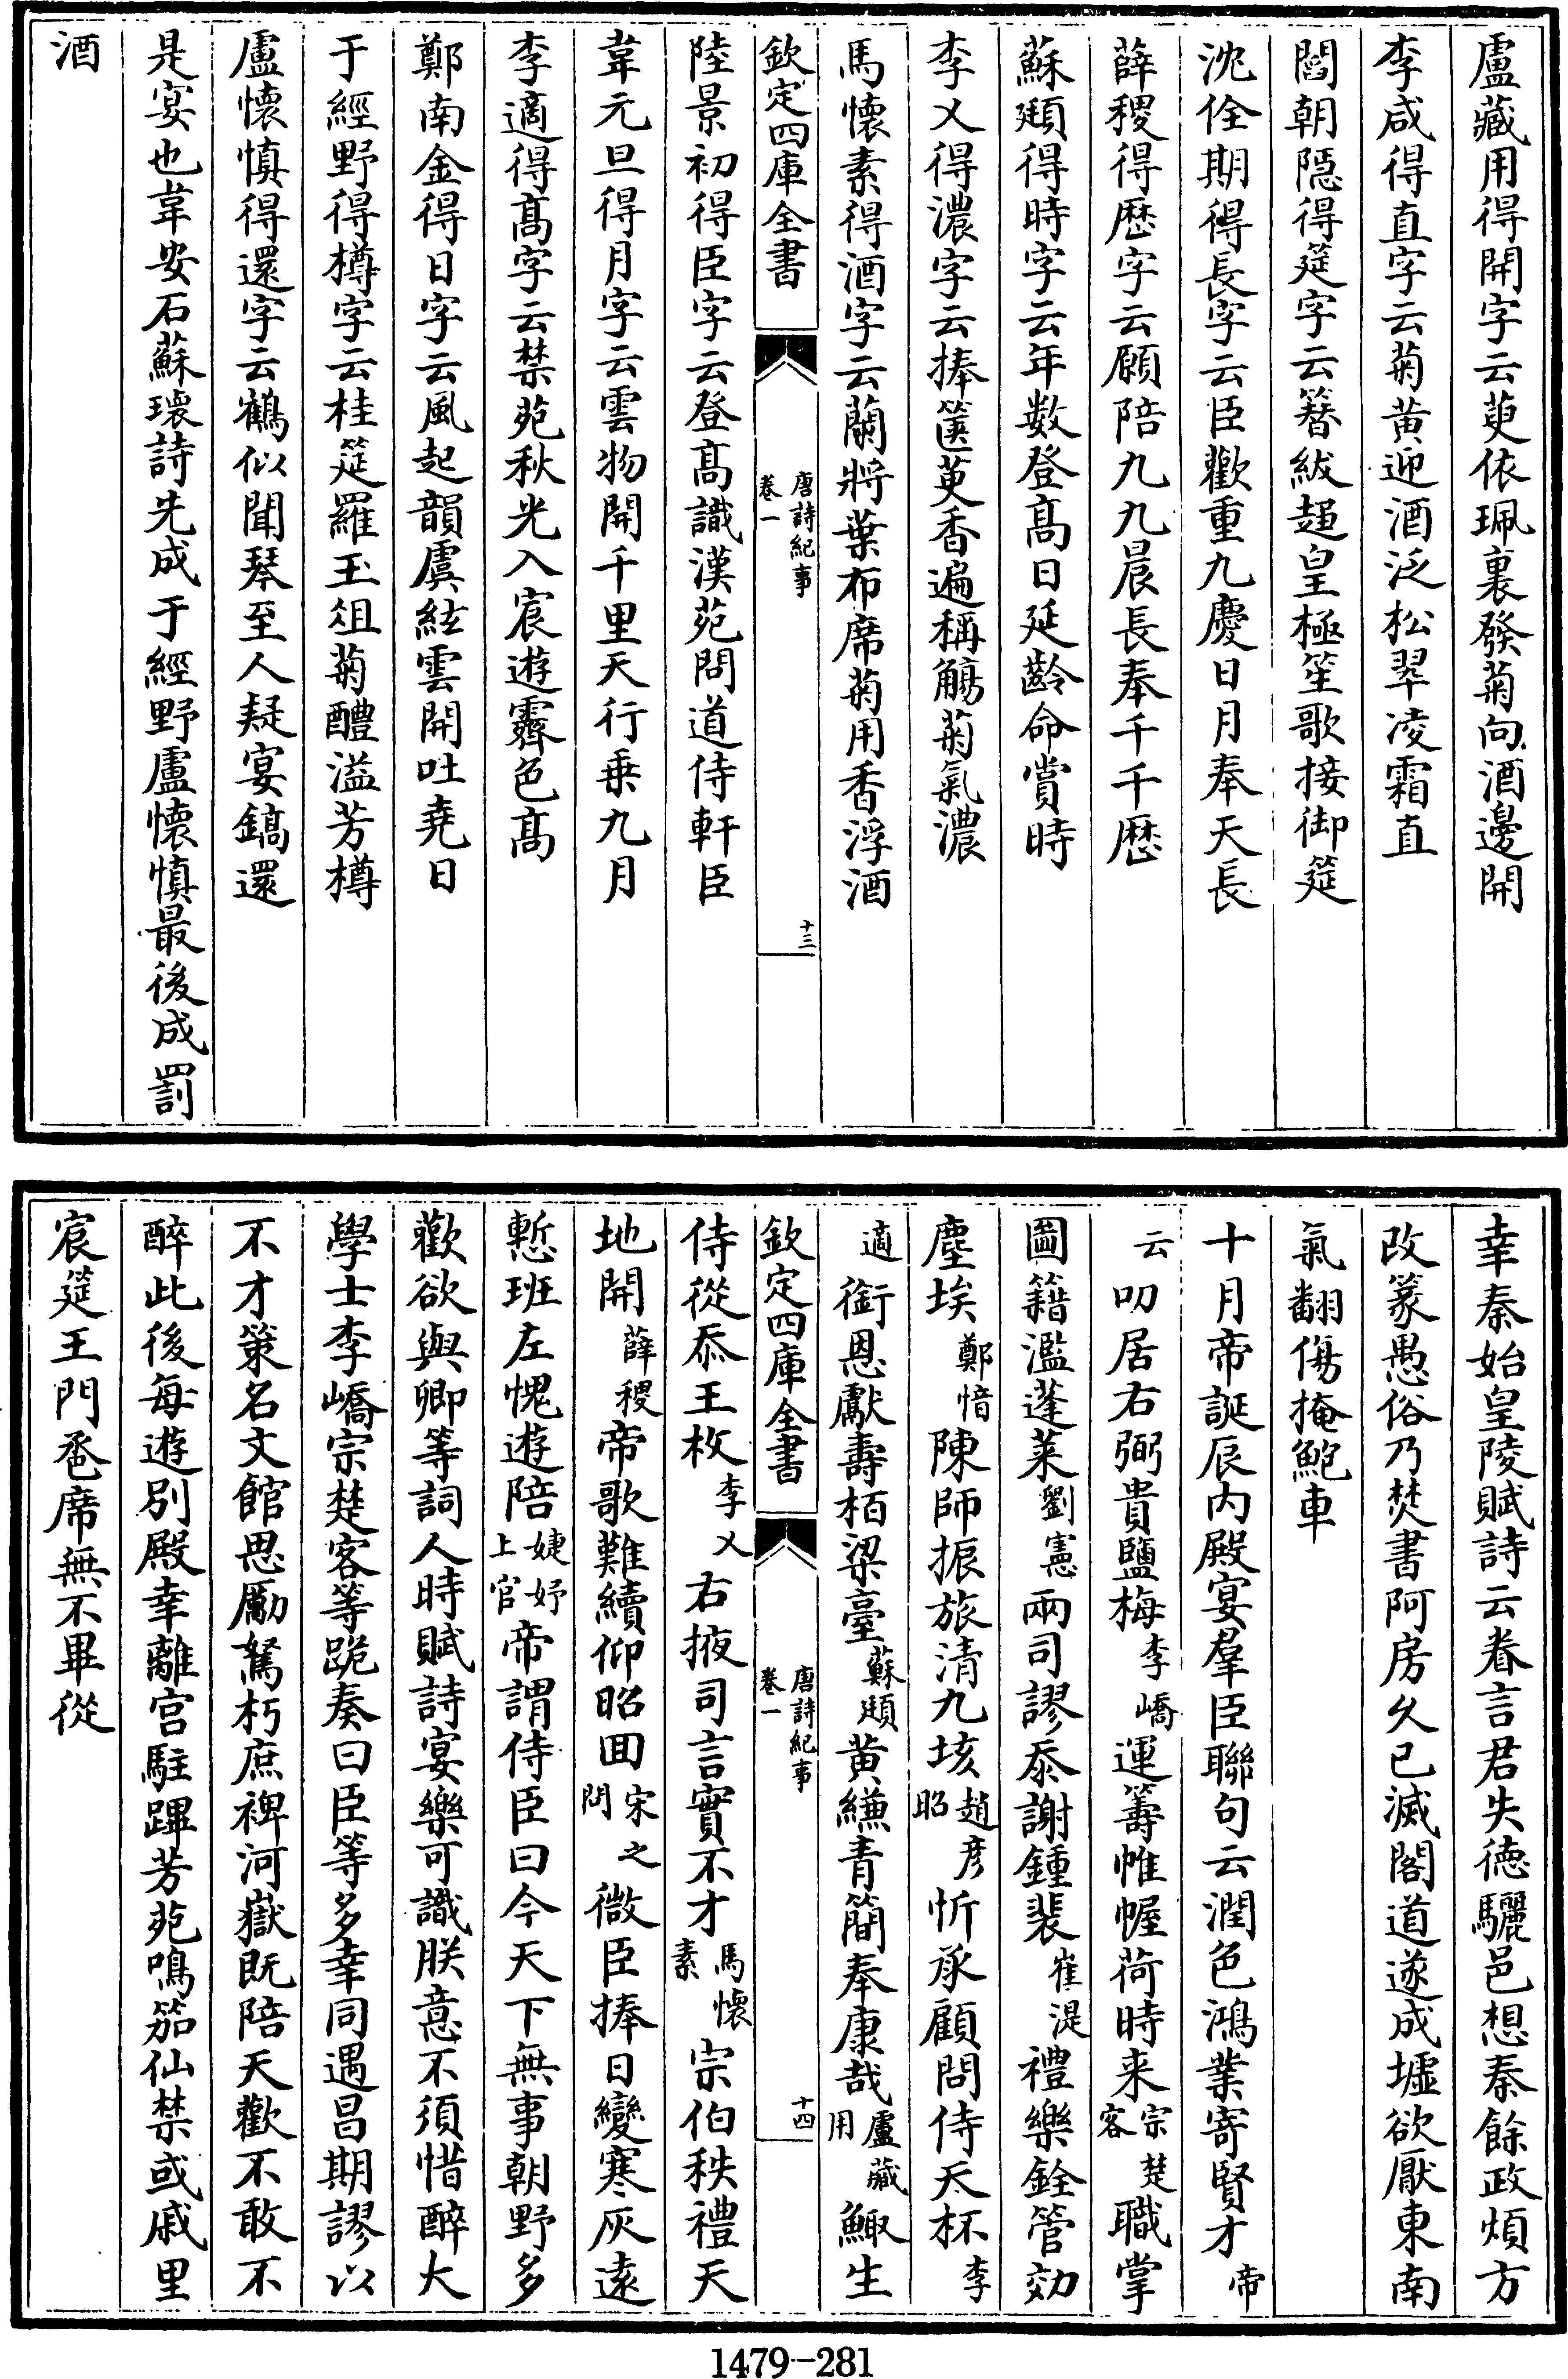 盧藏用得開字云萸依珮裏發菊向酒邊開
李咸得直字云菊黄迎酒泛松翠凌霜直
閻朝隱得筵字云簪紱趨皇極笙歌接御筵
沈佺期得長字云臣歡重九慶日月奉天長
薛稷得歴字云願陪九九晨長奉千千歴
蘇頲得時字云年数登髙日延齡命賞時
李乂得濃字云捧篋萸香遍稱觴菊氣濃
馬懷素得酒字云蘭將葉布席菊用香浮酒
欽定四庫全書
唐詩紀事
卷一
十三
陸景初得臣字云登髙識漢苑問道侍軒臣
韋元旦得月字云雲物開千里天行乗九月
李適得髙字云禁苑秋光入宸遊霽色髙
鄭南金得日字云風起韻虞絃雲開吐堯日
于經野得樽字云桂筵羅玉俎菊醴溢芳樽
盧懷慎得還字云鶴似聞琴至人疑宴鎬還
是宴也韋安石蘇瓌詩先成于經野盧懷慎最後成罰
酒
幸秦始皇陵賦詩云眷言君失徳驪邑想秦餘政煩方
改篆愚俗乃焚書阿房久已滅閣道遂成墟欲厭東南
氣翻傷掩鮑車
十月帝誕辰内殿宴羣臣聯句云潤色鴻業寄賢才帝
云叨居右弼貴鹽梅李嶠運籌帷幄荷時来宗楚客職掌
圖籍濫蓬萊劉憲兩司謬忝謝鍾裴崔湜禮樂銓管効
塵埃鄭愔陳師振旅清九垓趙彦昭忻承顧問侍天杯李
適銜恩獻壽栢梁臺蘇頲黄縑青簡奉康哉盧藏用鯫生
欽定四庫全書
唐詩紀事
卷一
十四
侍從忝王枚李乂右掖司言實不才馬懷素宗伯秩禮天
地開薛稷帝歌難續仰昭回宋之問微臣捧日變寒灰遠
慙班左愧遊陪婕妤上官帝謂侍臣曰今天下無事朝野多
歡欲與卿等詞人時賦詩宴樂可識朕意不須惜醉大
學士李嶠宗楚客等跪奏曰臣等多幸同遇昌期謬以
不才策名文館思勵駑朽庶裨河嶽既陪天歡不敢不
醉此後每遊别殿幸離宫駐蹕芳苑鳴笳仙禁或戚里
宸筵王門巹席無不畢從
1479-281